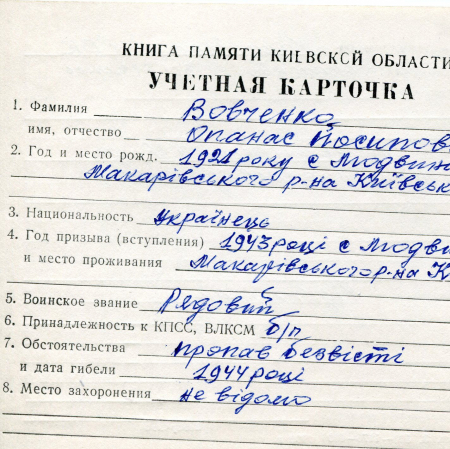 КНИГА ПАМЯТИ КИЕВСКОЙ ОБЛАСТИ
УЧЕТНАЯ КАРТОЧКА
1. Фамилия Вовченко
имя, отчество Опанас Йосипов
2. Год и место рожд. 1921 року с Людвин
Макарівського р-на Київськ
3. Национальность Українець
4. Год призыва (вступления) 1943 році с Людви
и место проживания Макарівського р-на К
5. Воинское звание Рядовий
6. Принадлежность к КПСС, ВЛКСМ б/п
7. Обстоятельства пропав безвісті
и дата гибели 1944 році
8. Место захоронения не відомо